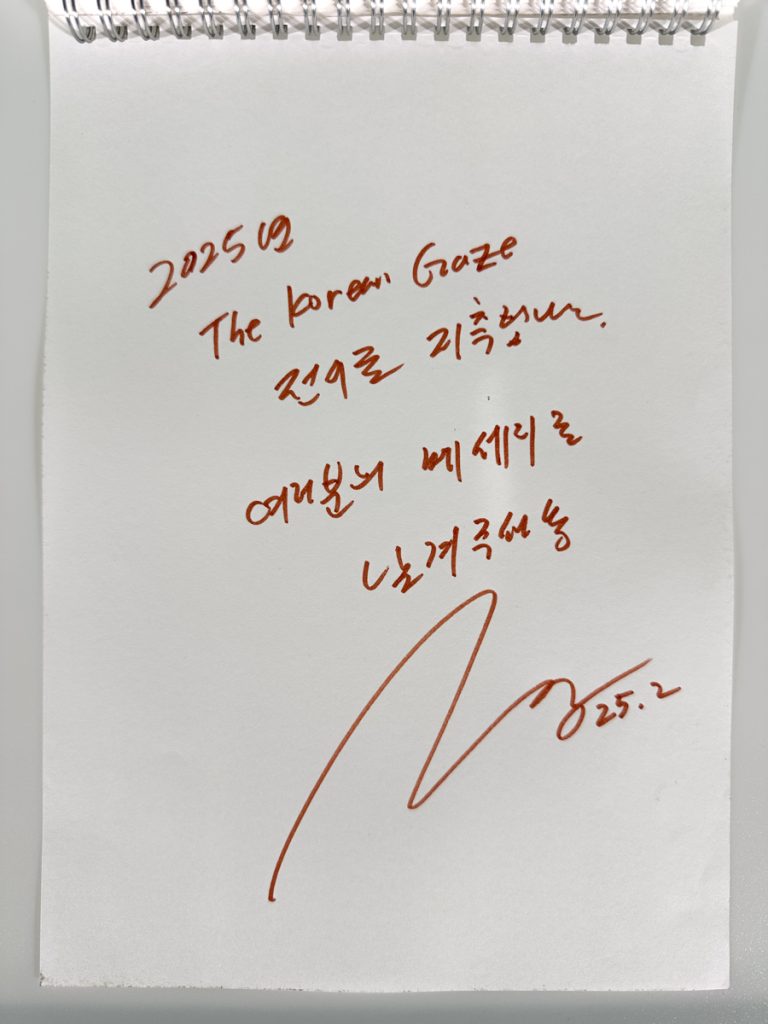 2025년
The Korean Gaze
전이를 기축합니다.
여러분의 메세지를
남겨주세용
25.2